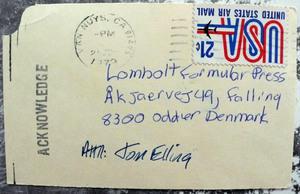 VAN NUYS, CA
PM
21¢
USA
UNITED STATES AIR MAIL
ACKNOWLEDGE
Lombolt Formular Press
Akjaervej 49, Falling
8300 oddier Denmark
Attn: Jon Elling